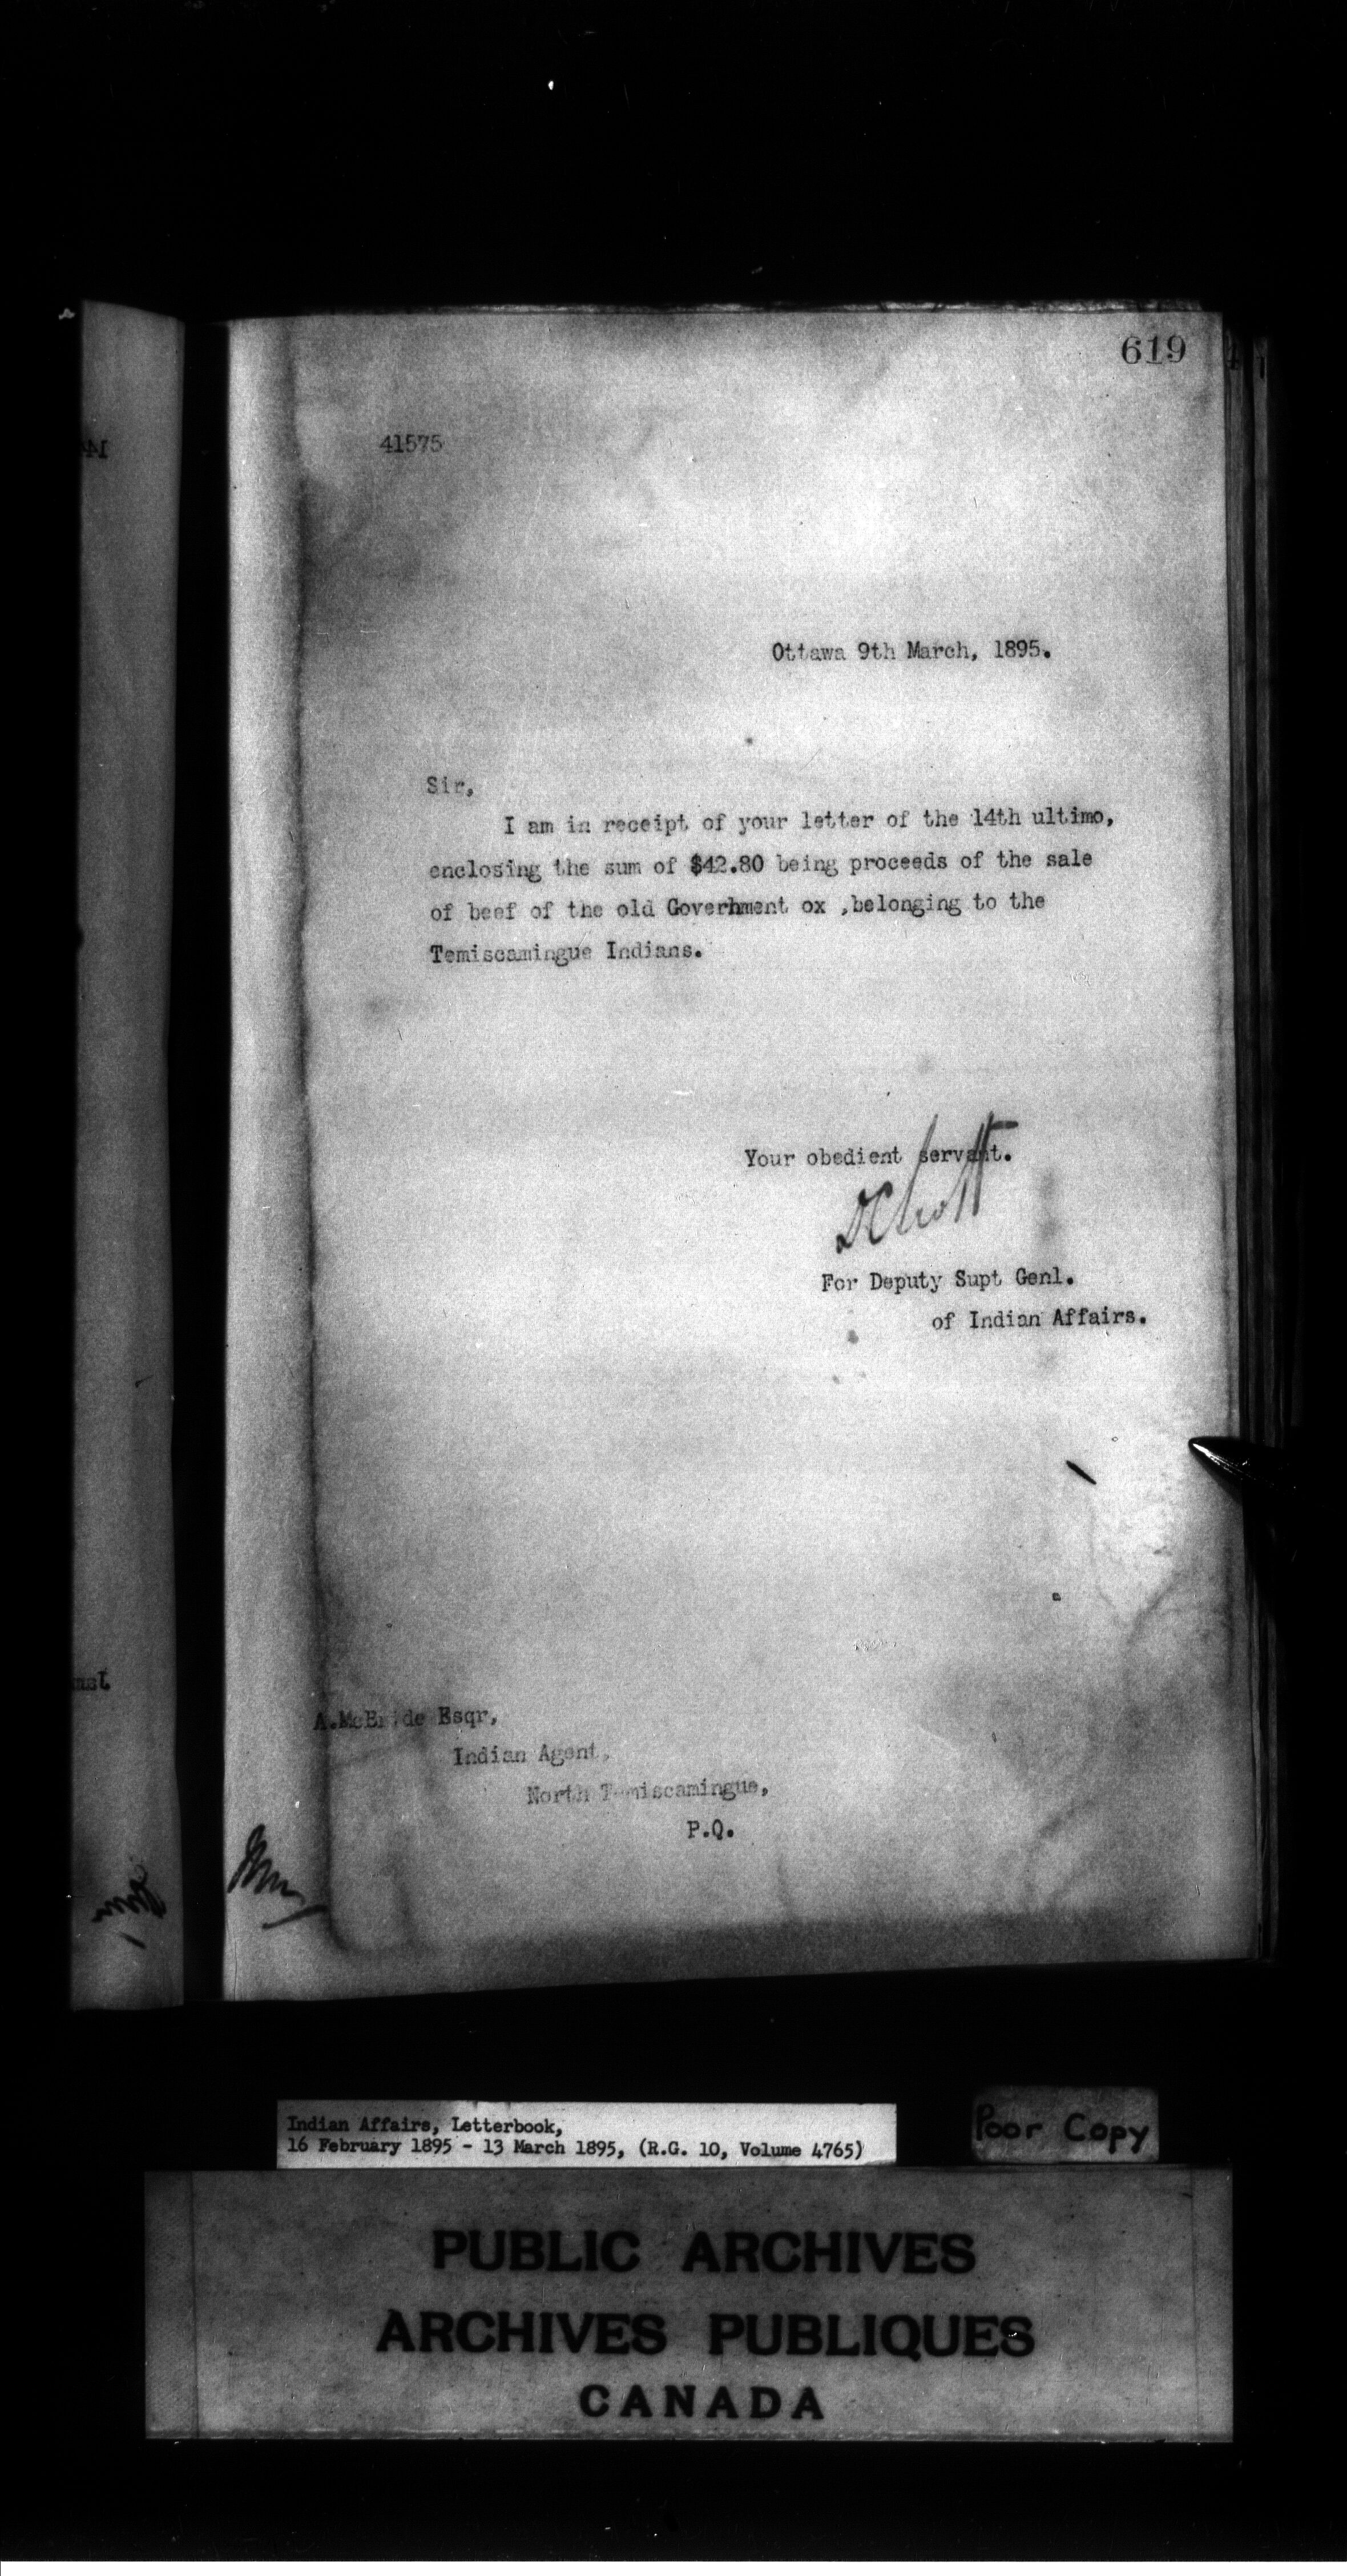 619
41575
Ottawa 9th March, 1895.
Sir,
I am in receipt of your letter of the 14th ultimo,
enclosing the sum of $42.80 being proceeds of the sale
of beef of the old Government ox ,belonging to the
Temiscamingue Indians.
Your obedient servant.
D C Scott
For Deputy Supt Genl.
of Indian Affairs.
A.McBride Esqr,
Indian Agent,
North Temiscamingue,
P.Q.
Indian Affairs, Letterbook,
16 February 1895 - 13 March 1895, (R.G. 10, Volume 4765)
Poor Copy
PUBLIC ARCHIVES
ARCHIVES PUBLIQUES
CANADA